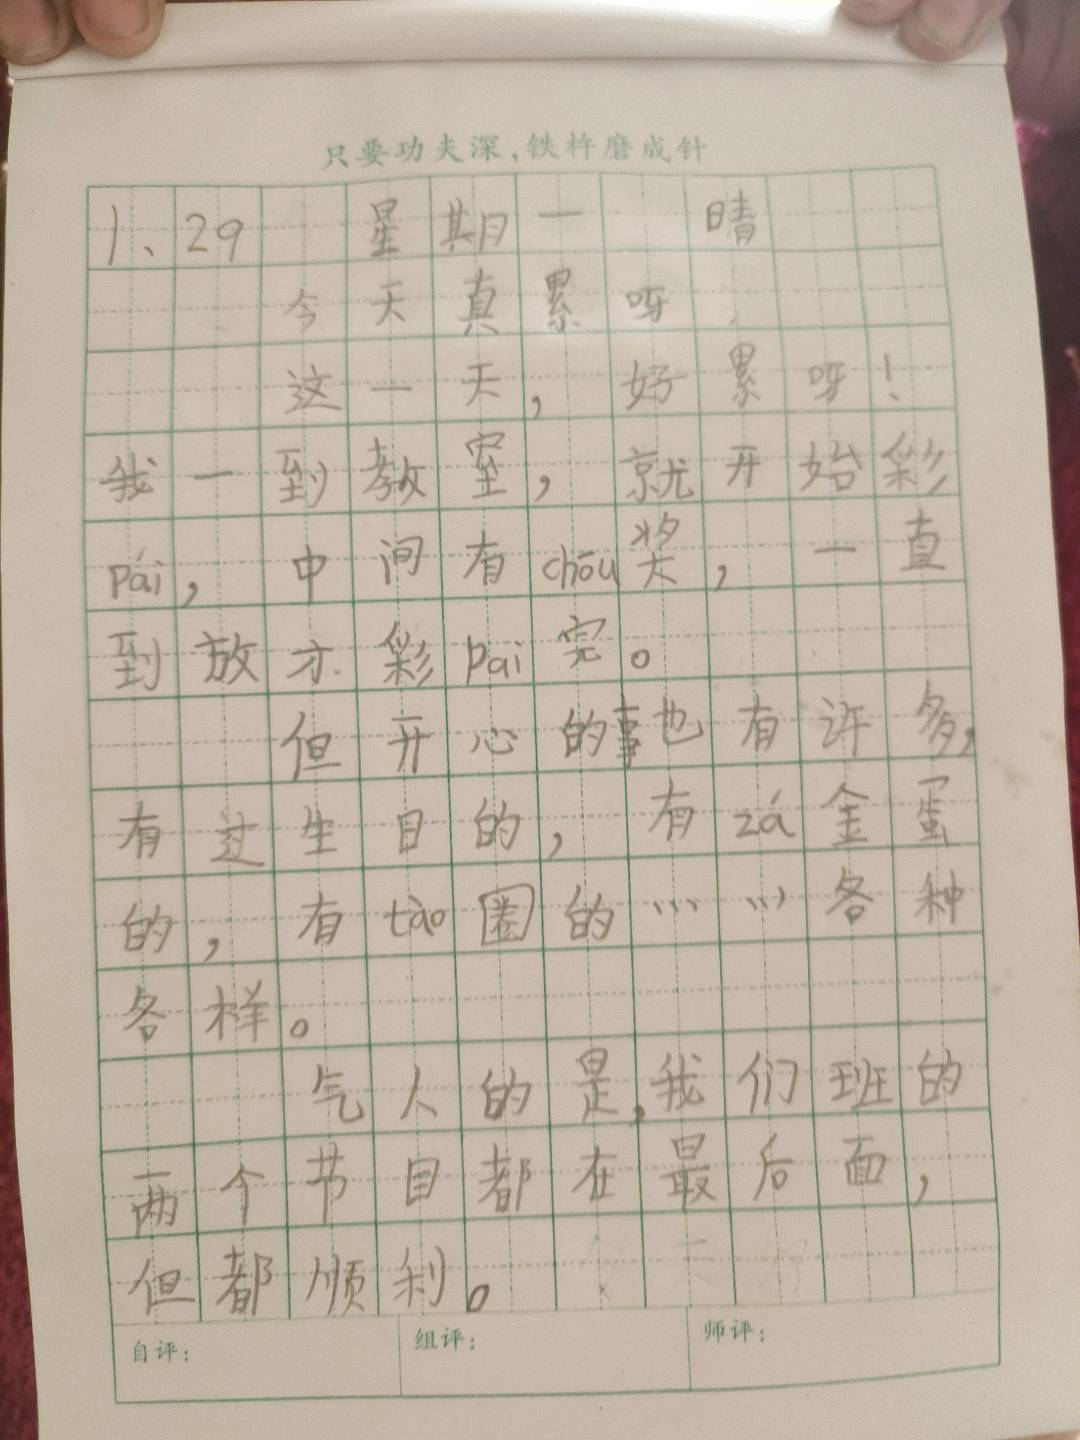 只要功夫深，铁杵磨成针
1、29 星期一 晴
今天真累呀
这一天，好累呀！
我一到教室，就开始彩
pái，中间有chōu奖，一直
到放才彩pai完。
但开心的事也有许多，
有过生日的，有zá金蛋
的，有tào圈的……各种
各样。
气人的是，我们班的
两个节目都在最后面，
但都顺利。
自评： 组评： 师评：